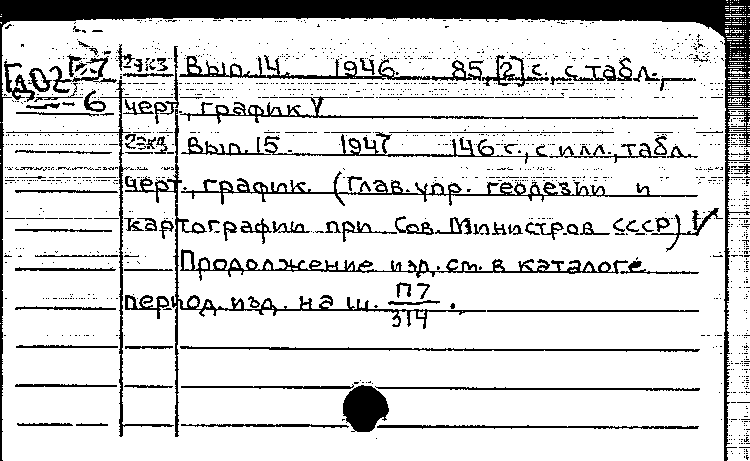 2экз Вып. 14. 1946. 85, [2] с., с табл.,
6
черт., график V
2экз Вып. 15. 1947 146 с., с илл., табл.
черт., график. (Глав. упр. геодезии и
картографии при Сов. Министров СССР) V
Продолжение изд. см. в каталоге
период. изд. на ш. П7/314.